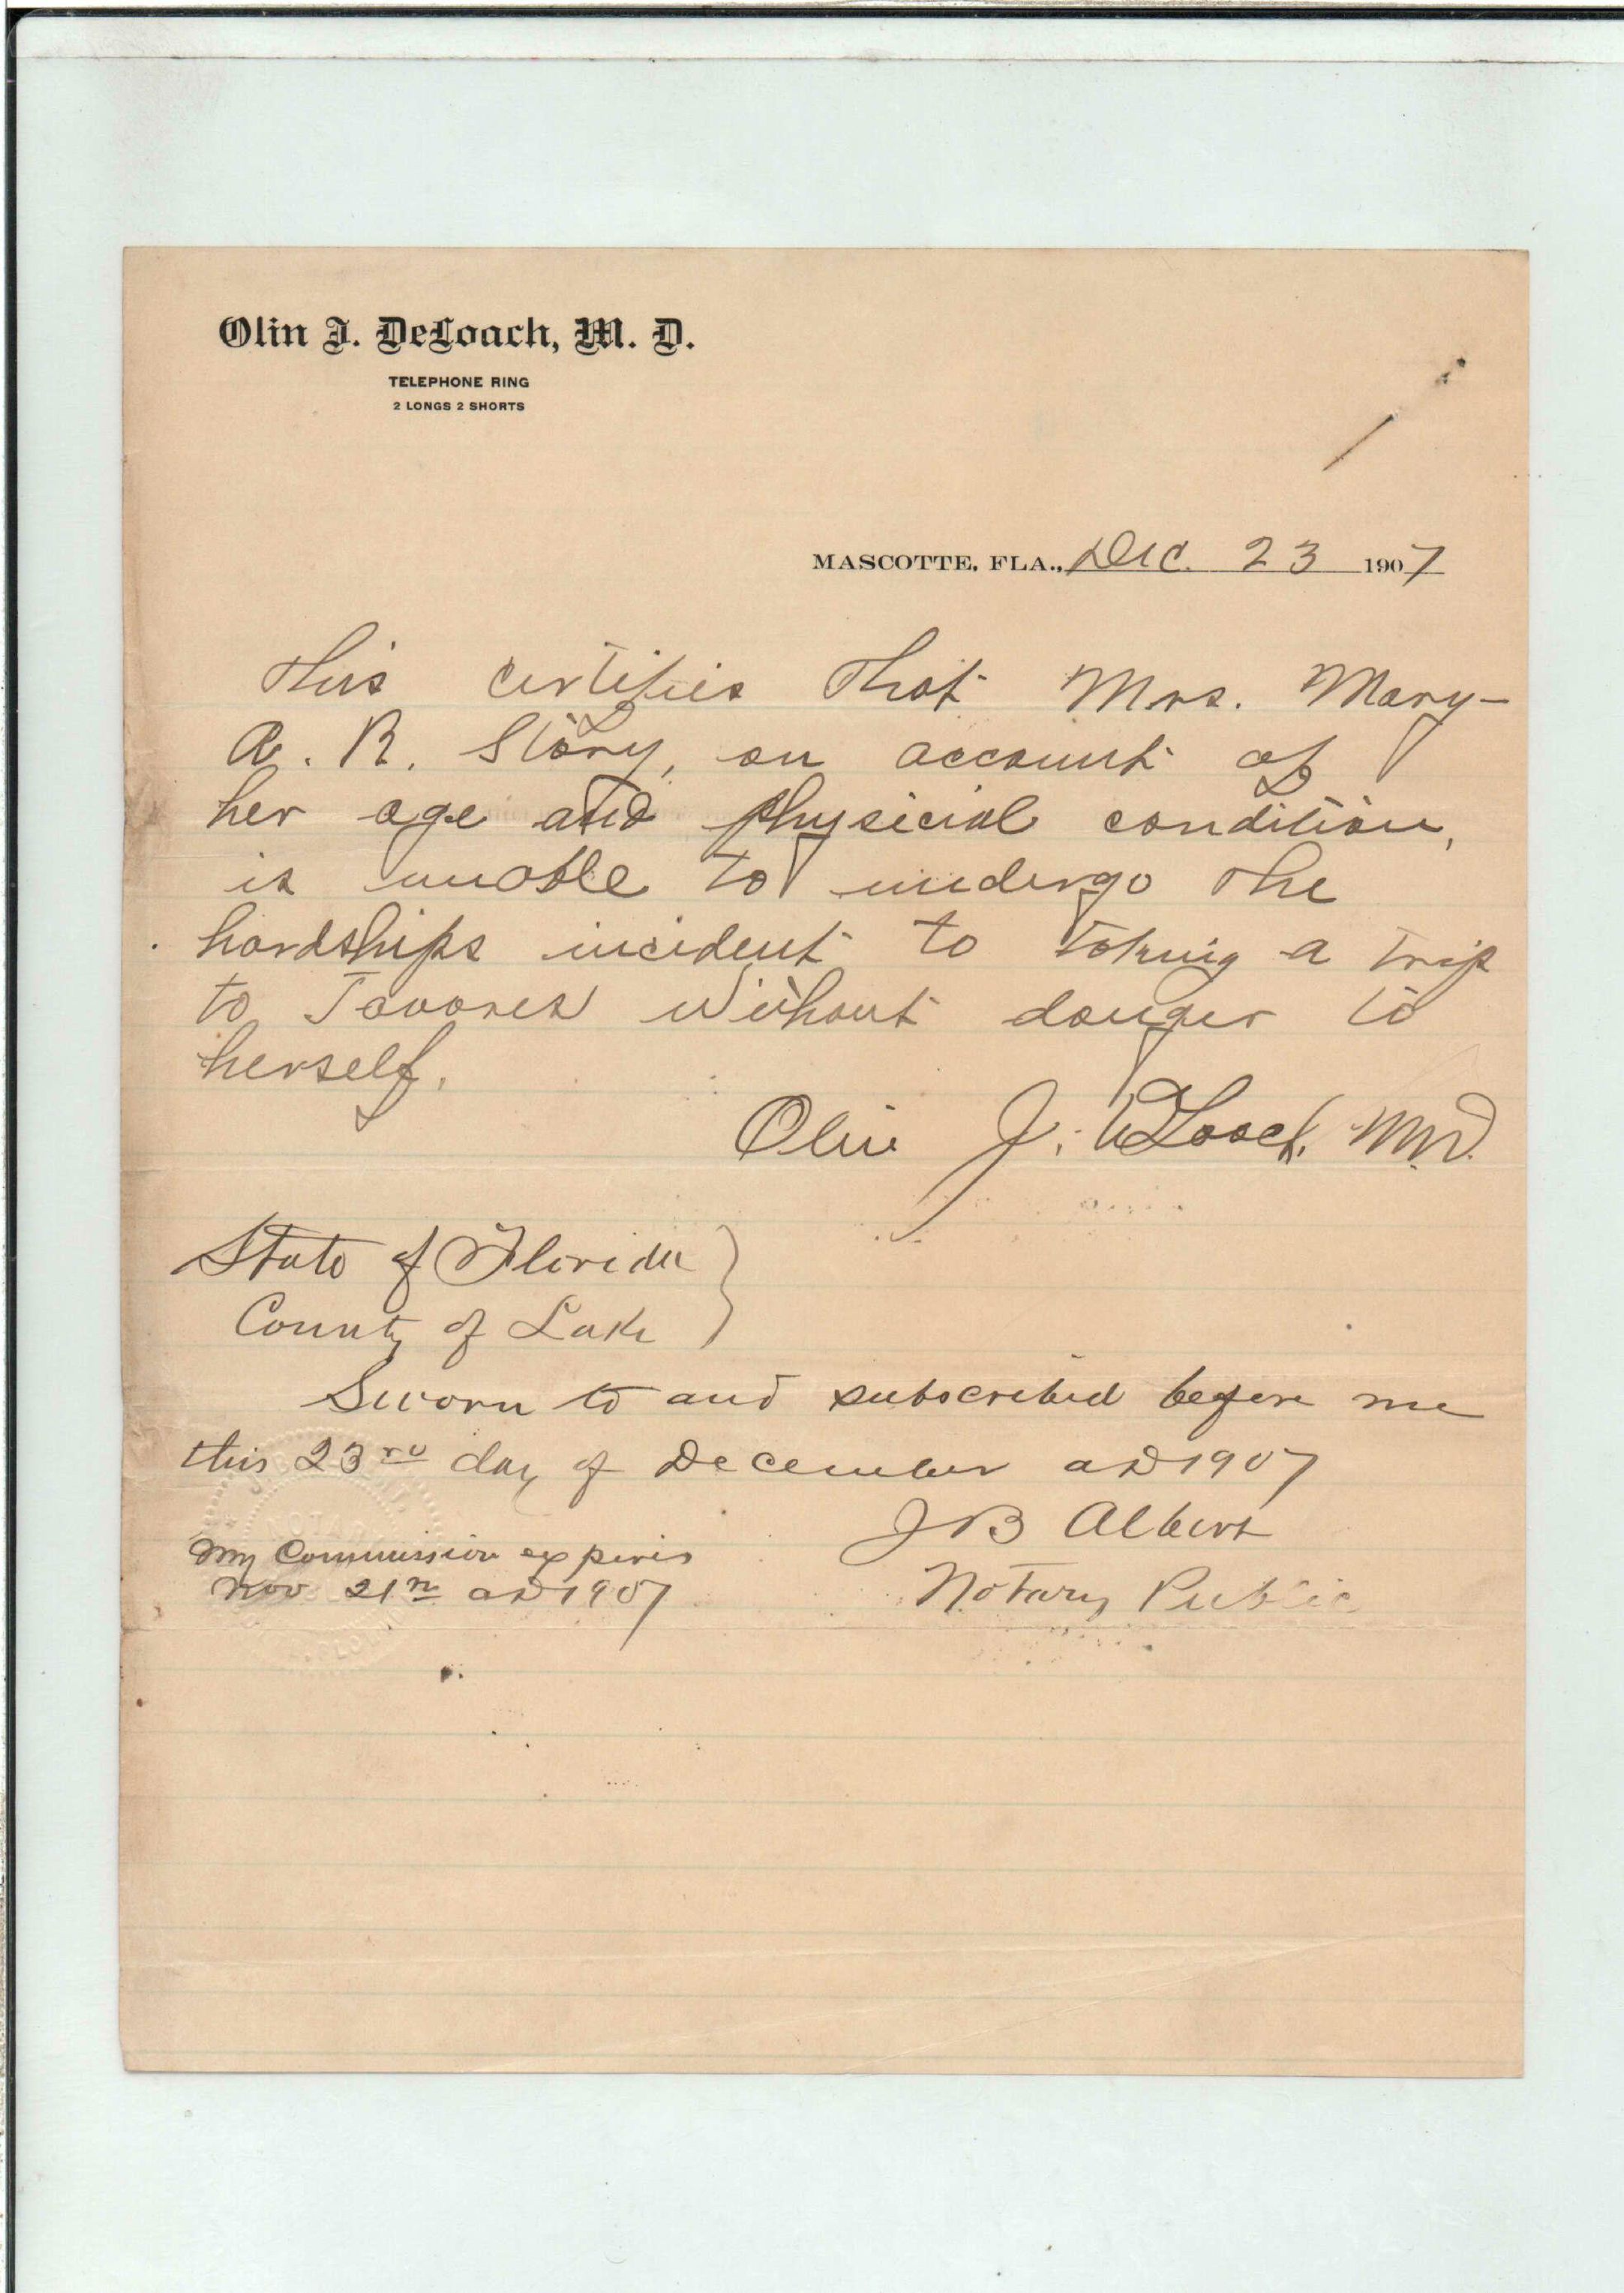 Olin J. DeLoach, M. D.
TELEPHONE RING
2 LONGS 2 SHORTS
MASCOTTE, FLA., Dec. 23 1907
This certifies that Mrs. Mary-
A. R. Story, on account of
her age and physicial condition,
is unable to undergo the
hardships incident to taking a trip
to Tavares without danger to
herself.
Olin J. DeLoach, M.D.
State of Florida }
County of Lake
Sworn to and subscribed before me
this 23rd day of December AD 1907
J B Albert
My Commission expires
Nov 21 AD 1907
Notary Public
NOTARY